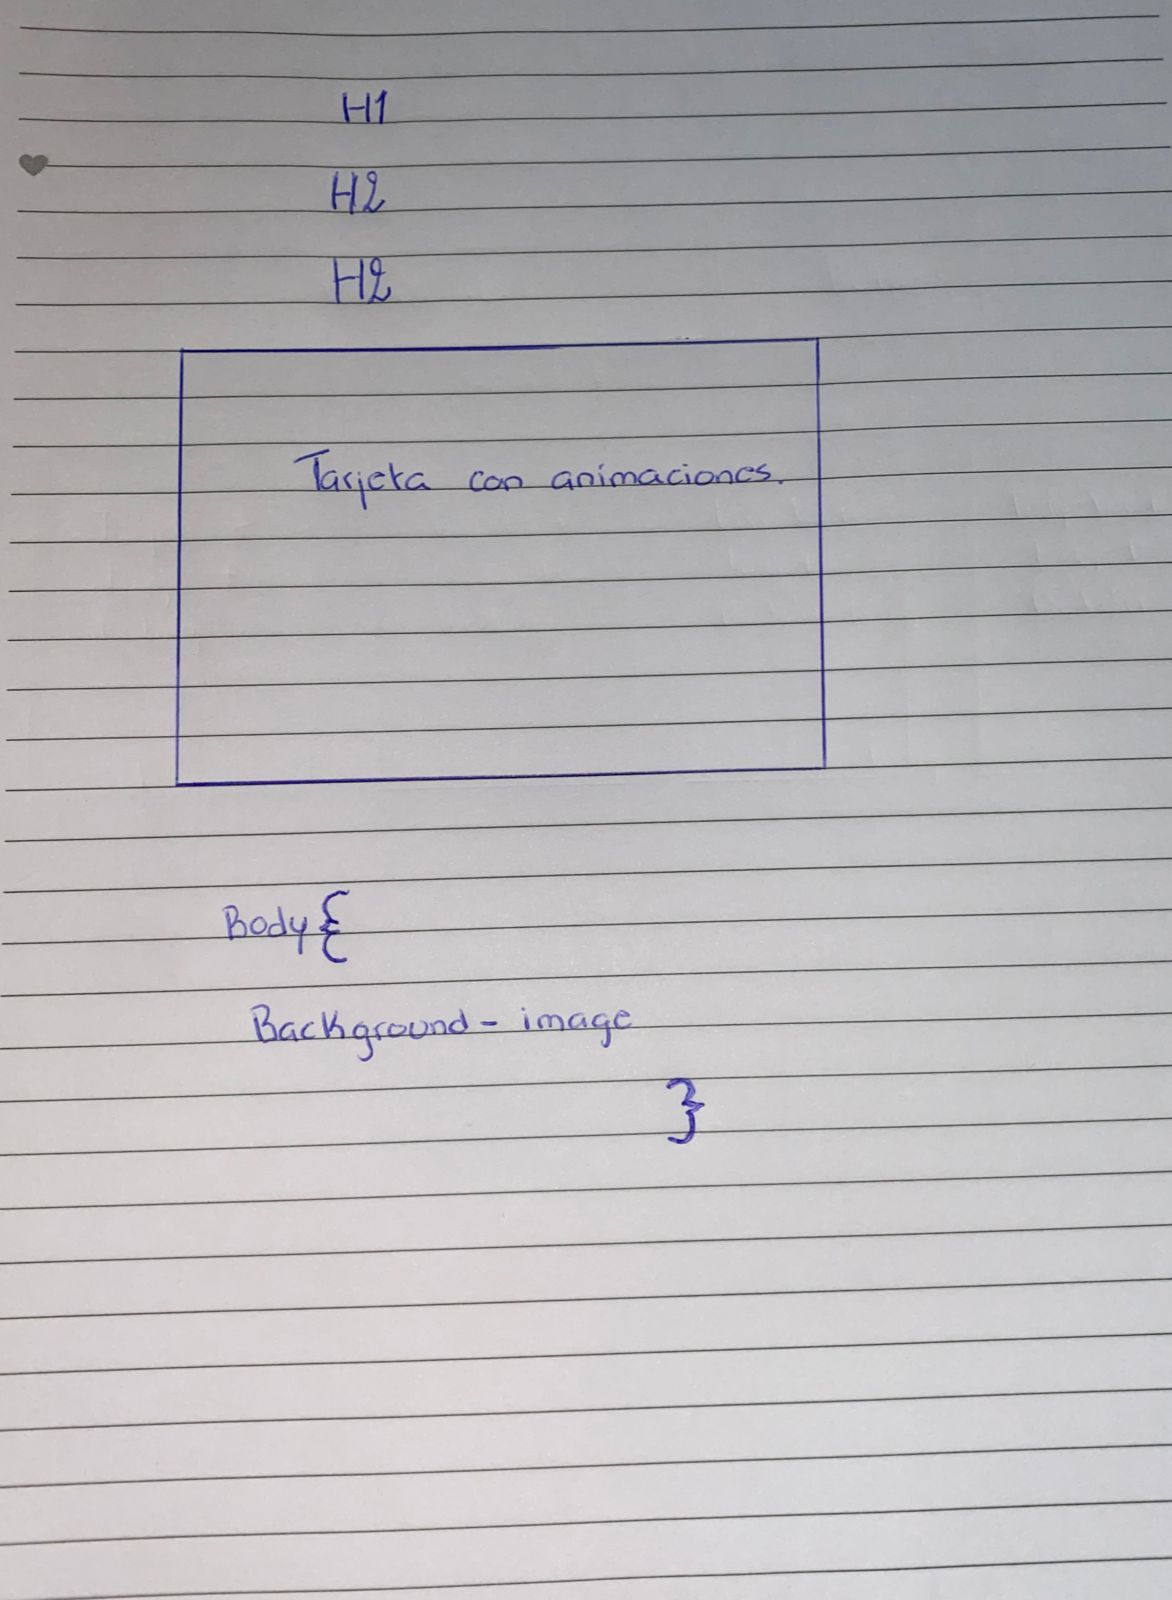 H1
H2
H2
Tarjeta con animaciones.
Body {
Background - image
}